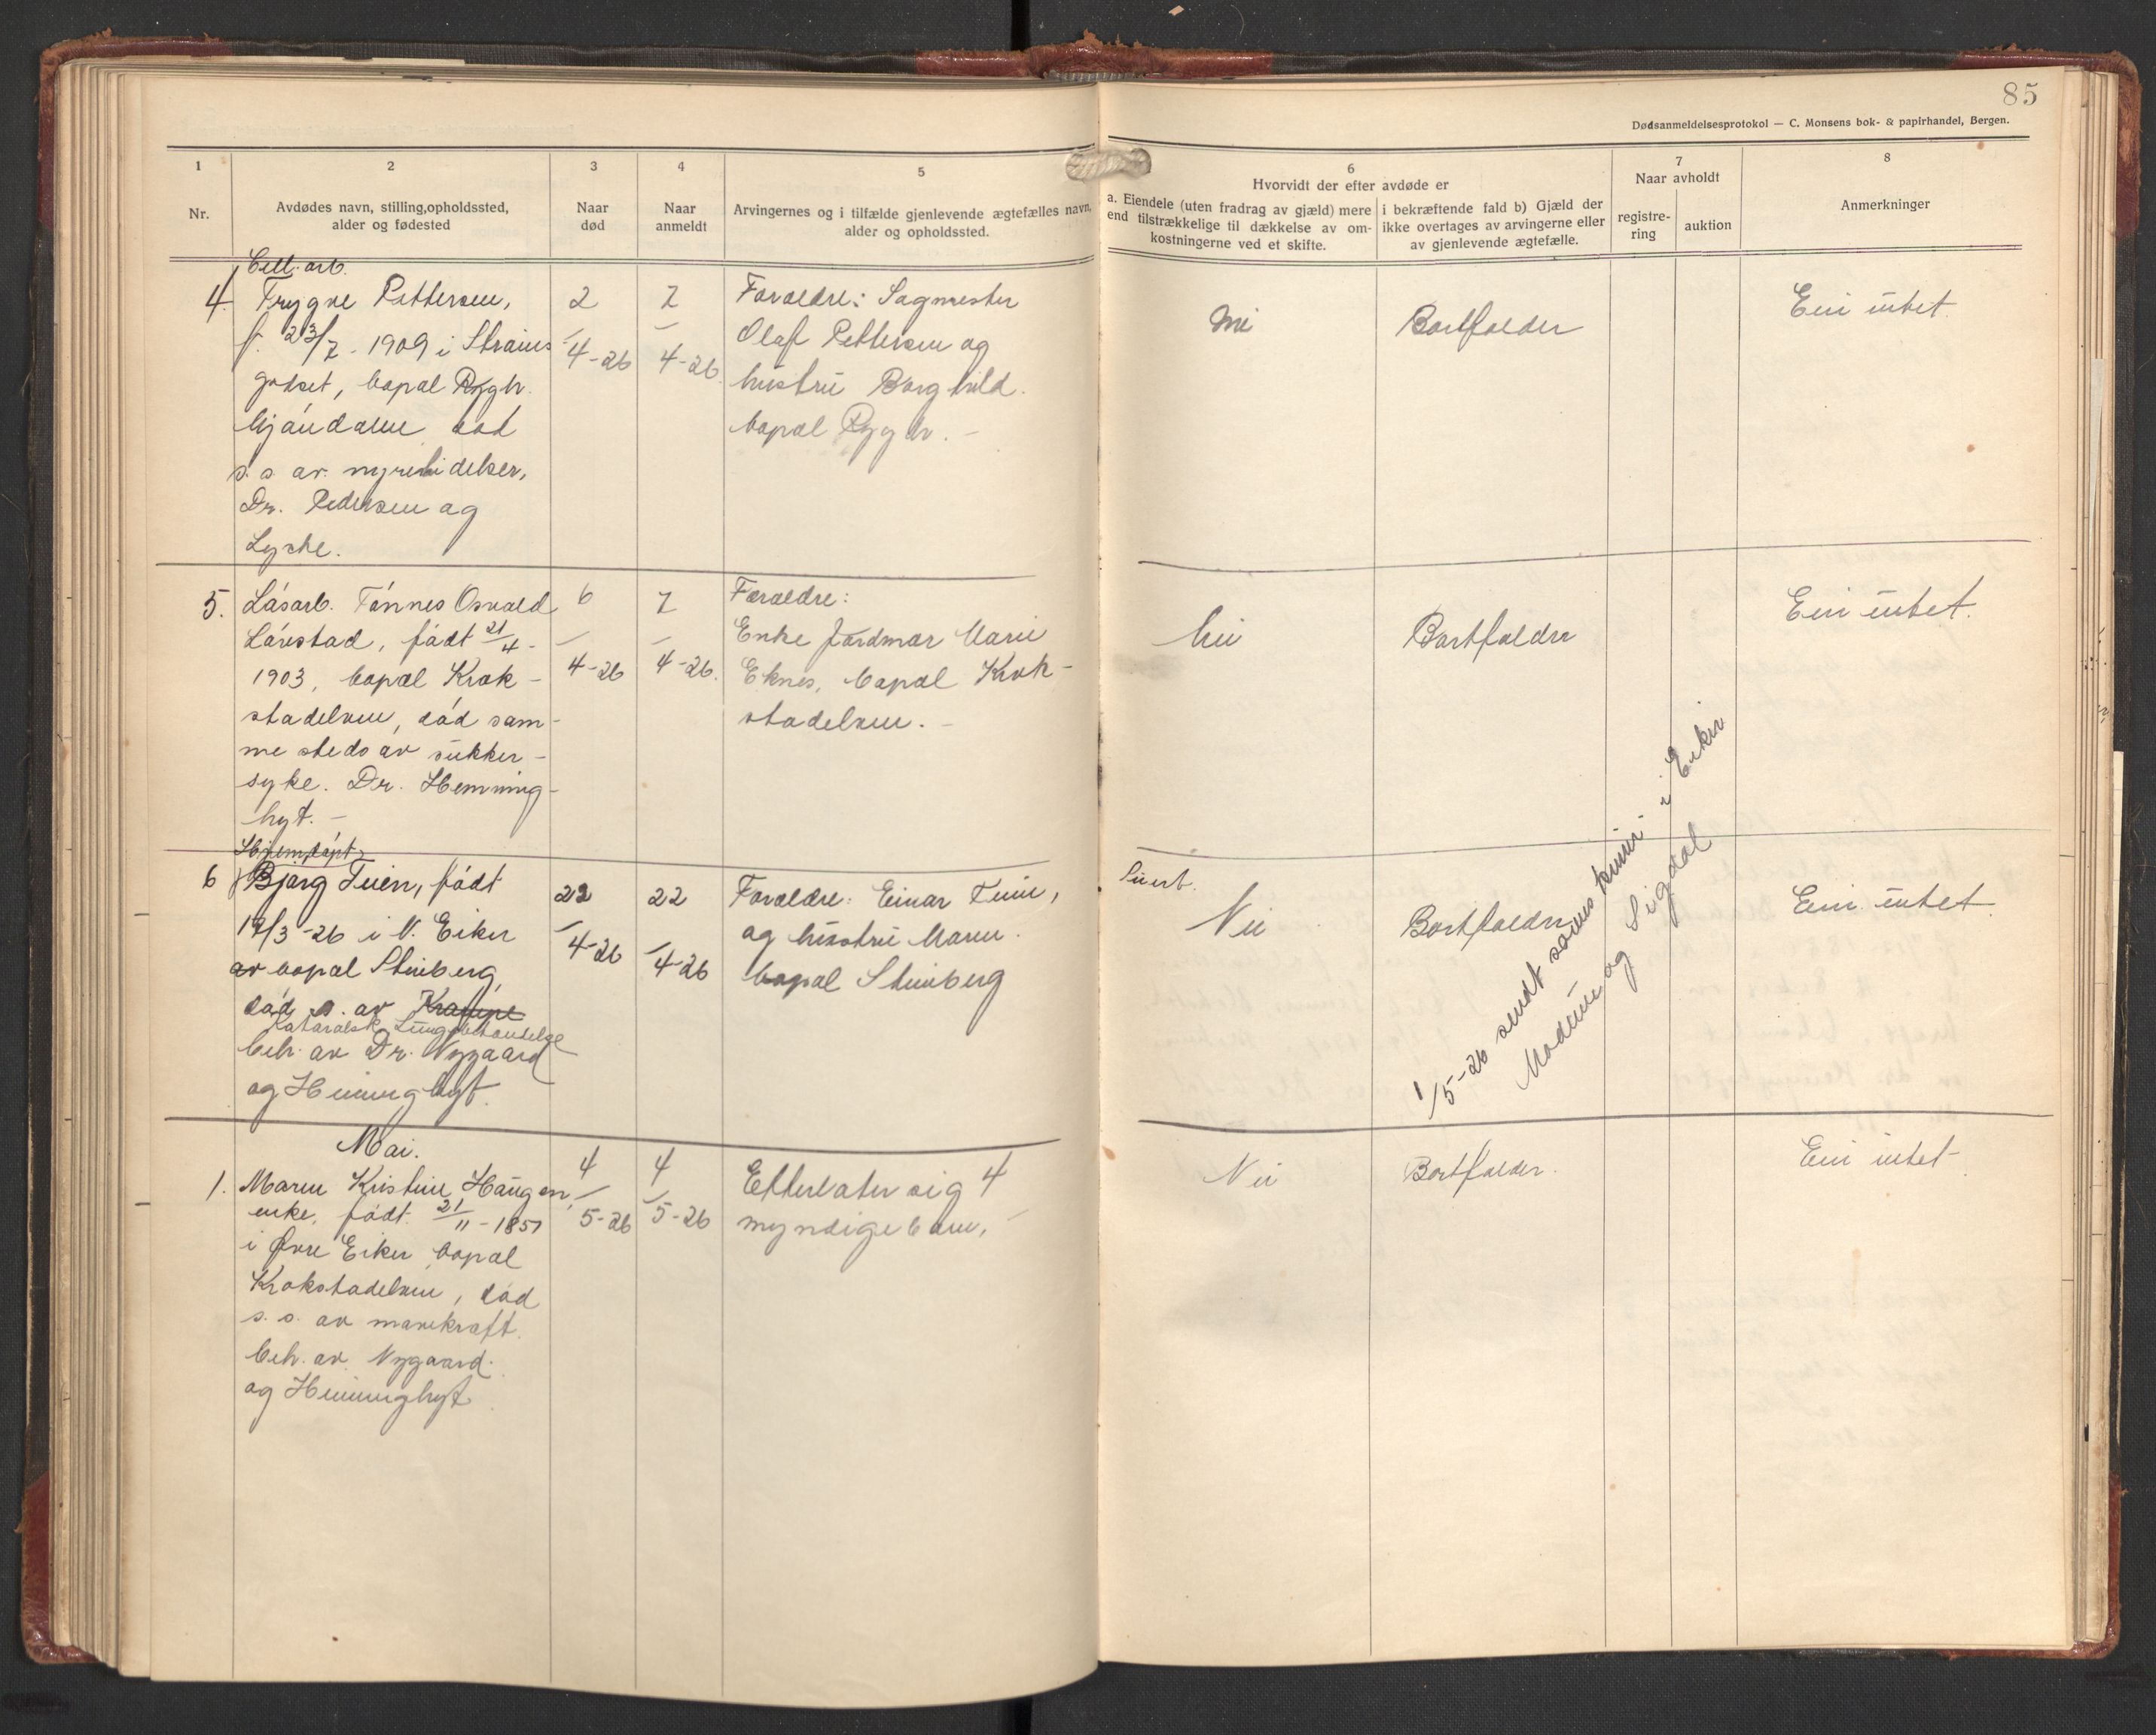 85
Dødsanmeldelsesprotokol — C. Monsens bok- & papirhandel, Bergen.
1
Nr.
2
Avdødes navn, stilling, opholdssted,
alder og fødested
3
Naar
død
4
Naar
anmeldt
5
Arvingernes og i tilfælde gjenlevende ægtefælles navn,
alder og opholdssted.
6
Hvorvidt der efter avdøde er
a. Eiendele (uten fradrag av gjæld) mere
end tilstrækkelige til dækkelse av om-
kostningerne ved et skifte.
i bekræftende fald b) Gjæld der
ikke overtages av arvingerne eller
av gjenlevende ægtefælle.
7
Naar avholdt
registre-
ring
auktion
8
Anmerkninger
Cell. arb.
4. Trygve Pettersen,
f. 23/7 - 1909 i Strøms
godset, bopæl Ryggh.
Mjøndalen død
s. s. av nyrelidelser,
Dr. Pedersen og
Lyche.
2
4-26
7
4-26.
Foræeldre: Sagmester
Olaf Pettersen og
hustru Borghild.
bopæl Ryggh. -
Nei
Bortfalder
Eier intet.
5. Løsarb. Tønnes Osvald
Lørestad, født 21/4 -
1903, bopæl Krok-
stadelven, død sam-
me steds av sukker-
syke. Dr. Hemming-
hyt. -
6
4-26
7
4-26.
Foræeldre:
Enke Marie
Eknes, bopæl Krok-
stadelven. -
Nei
Bortfalder
Eier intet.
Hjemdøpt
6 Bjørg Teien, født
19/3-26 i N. Eiker
av bopæl Stenberg,
død s. av Krampe
Kataralsk Lungebetændelse
beh. av Dr. Nygaard
og Hemminghyt.
22
4-26
22
4-26
Foræeldre: Einar Teien,
og hustru Maren.
bopæl Stenberg
Nei
Bortfalder
Eier intet.
1/5-26 sendt i Eiker
Modum og Sigdal
Mai.
1. Maren Kristine Haugen,
enke, født 21/11 - 1851
i Øvre Eiker, bopæl
Krokstadelven, død
s. s. av mavekræft.
beh. av Nygaard.
og Hemminghyt
4
5-26
4
5-26
Etterlater sig 4
myndige barn. -
Nei
Bortfalder.
Eier intet -